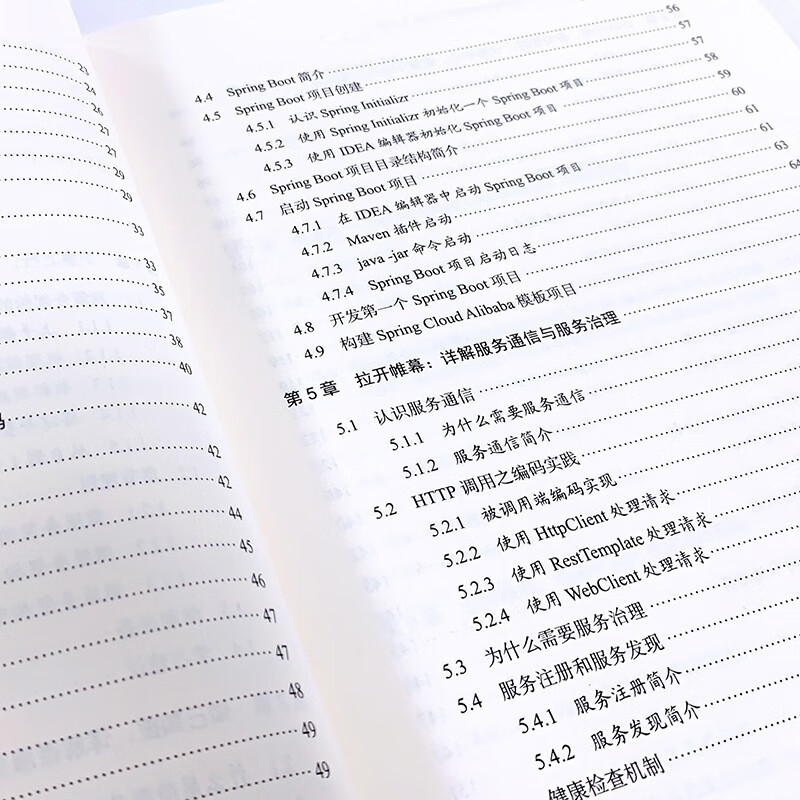 23
24
26
27
27
29
29
33
33
35
37
38
40
42
42
42
44
45
46
47
47
48
49
49
4.4 Spring Boot 简介 56
4.5 Spring Boot 项目创建 57
4.5.1 认识 Spring Initializr 57
4.5.2 使用 Spring Initializr 初始化一个 Spring Boot 项目 58
4.5.3 使用 IDEA 编辑器初始化 Spring Boot 项目 59
4.6 Spring Boot 项目目录结构简介 60
4.7 启动 Spring Boot 项目 61
4.7.1 在 IDEA 编辑器中启动 Spring Boot 项目 61
4.7.2 Maven 插件启动 63
4.7.3 java -jar 命令启动
4.7.4 Spring Boot 项目启动日志
4.8 开发第一个 Spring Boot 项目
4.9 构建 Spring Cloud Alibaba 模板项目
第 5 章 拉开帷幕：详解服务通信与服务治理
5.1 认识服务通信
5.1.1 为什么需要服务通信
5.1.2 服务通信简介
5.2 HTTP 调用之编码实践
5.2.1 被调用端编码实现
5.2.2 使用 HttpClient 处理请求
5.2.3 使用 RestTemplate 处理请求
5.2.4 使用 WebClient 处理请求
5.3 为什么需要服务治理
5.4 服务注册和服务发现
5.4.1 服务注册简介
5.4.2 服务发现简介
健康检查机制